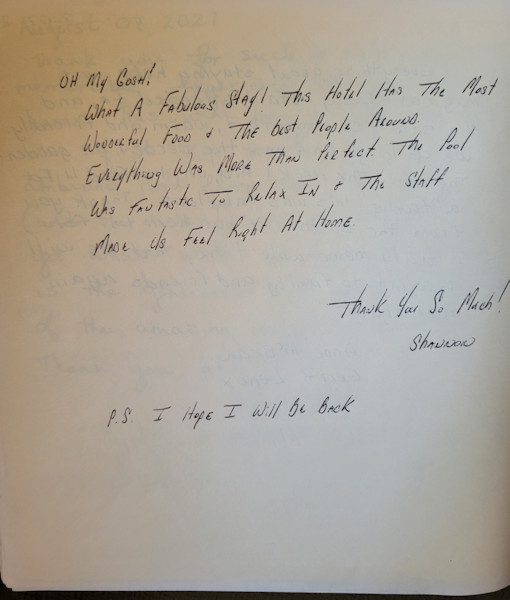 OH My Gosh!
What A Fabulous Stay! This Hotel Has The Most
Wonderful Food & The Best People Around.
Everything Was More Than Perfect. The Pool
Was Fantastic To Relax In & The Staff
Made Us Feel Right At Home.
Thank You So Much!
Shannon
P.S. I Hope I Will Be Back